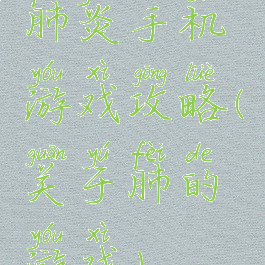 肺炎手机
yóu xì gōng lüè
游戏攻略(
guān yú fèi de
关于肺的
yóu xì
游戏)